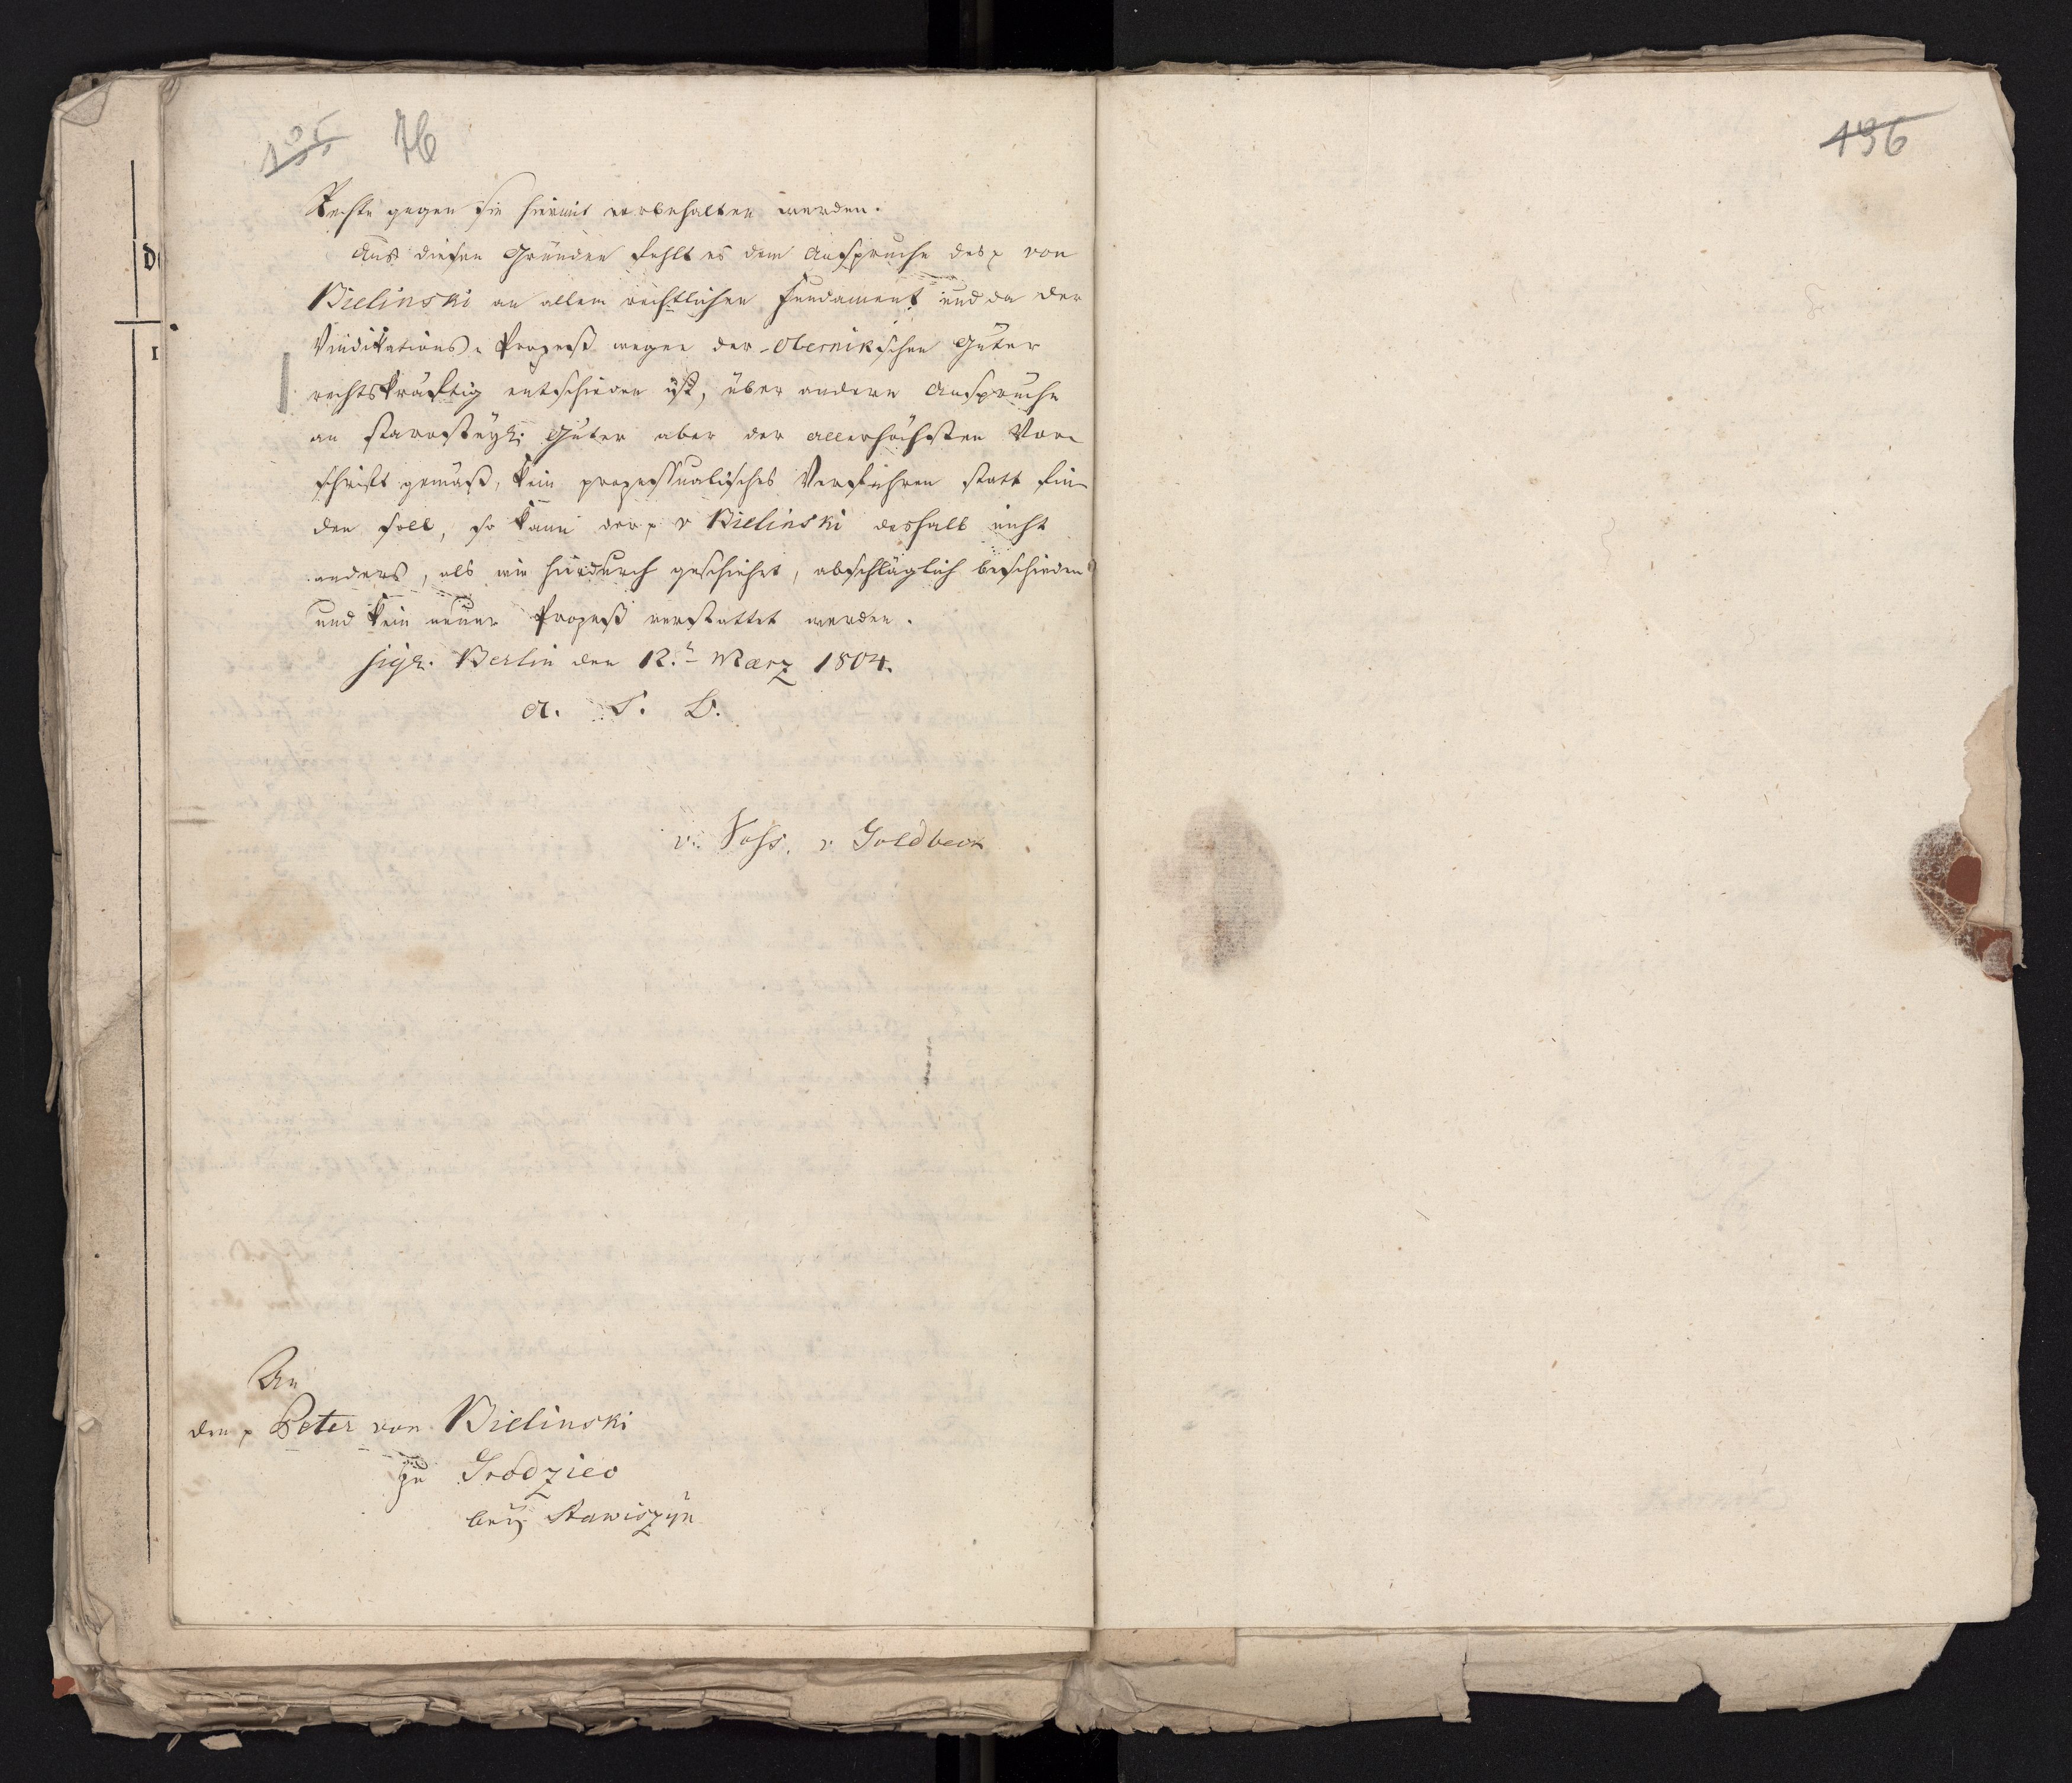 135 76
Rechte gegen sie hiermit vorbehalten werden.
Aus diesen Gründen fehlt es dem Anspruche des p von
Bielinski an allem rechtlichen Fundament und da der
Vindikations-Prozeß wegen der Obernikschen Güter
rechtskräftig entschieden ist, über andere Ansprüche
an starosteyl: Güter aber der allerhöchsten Vor-
schrift gemäß, kein prozessualisches Verfahren statt fin-
den soll, so kann der p v Bielinski deshalb nicht
anders, als wie hierdurch geschiehet, abschläglich beschieden
und kein neuer Prozeß verstattet werden.
Sign. Berlin den 12.t März 1804.
a. S. B.
v. Voss. v Goldbeck
An
den p Peter von Bielinski
zu Grodziec
bey Stawiszyn
136